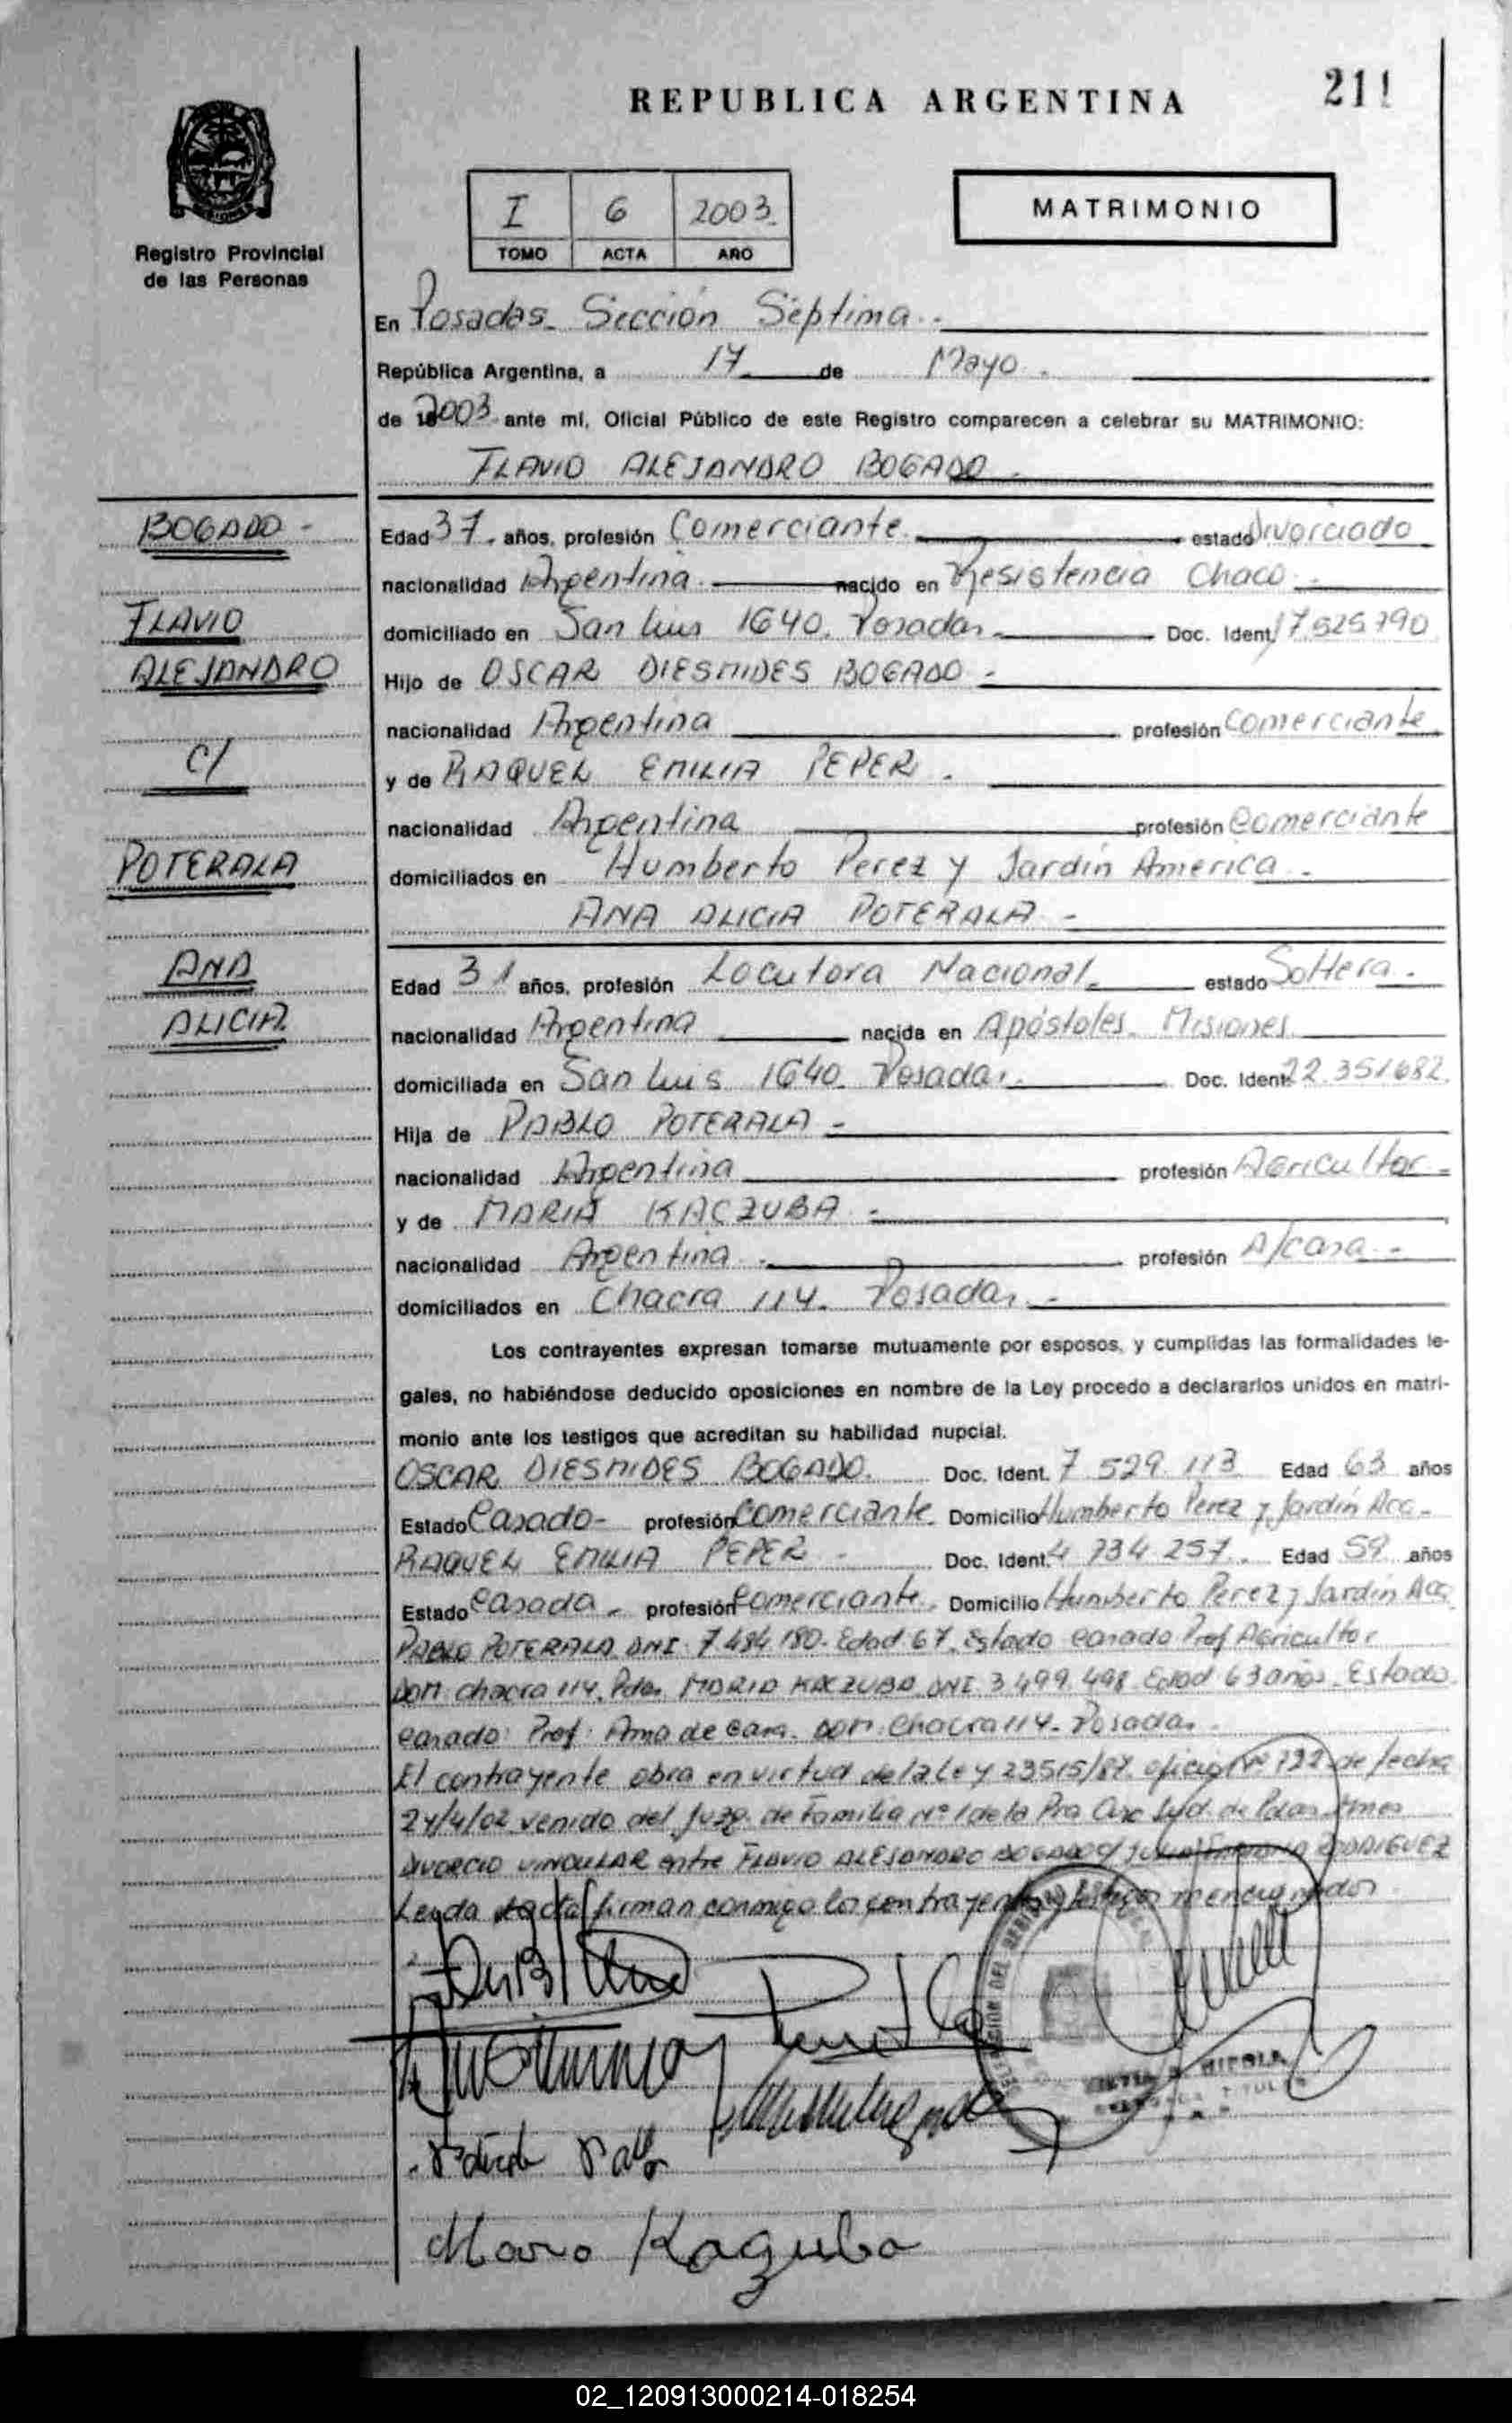 REPUBLICA ARGENTINA
211
Registro Provincial
de las Personas
I 6 2003
TOMO ACTA AÑO
MATRIMONIO
En Posadas Sección Séptima.
República Argentina, a 17 de Mayo.
de 2003 ante mi, Oficial Público de este Registro comparecen a celebrar su MATRIMONIO:
FLAVIO ALEJANDRO BOGADO
BOGADO -
FLAVIO
ALEJANDRO
C/
POTERALA
ANA
ALICIA
Edad 37 años, profesión Comerciante estado Divorciado
nacionalidad Argentina nacido en Resistencia Chaco
domiciliado en San Luis 1640. Posadas Doc. Ident. 17.525.790
Hijo de OSCAR DIESMIDES BOGADO -
nacionalidad Argentina profesión Comerciante
y de RAQUEL EMILIA PEPER.
nacionalidad Argentina profesión Comerciante
domiciliados en Humberto Perez y Jardín America
ANA ALICIA POTERALA -
Edad 31 años, profesión Locutora Nacional estado Soltera.
nacionalidad Argentina nacida en Apóstoles. Misiones
domiciliada en San Luis 1640. Posadas Doc. Ident. 22.351682
Hija de PABLO POTERALA -
nacionalidad Argentina profesión Agricultor -
y de MARIA KACZUBA -
nacionalidad Argentina profesión A/casa -
domiciliados en Chacra 114. Posadas -
Los contrayentes expresan tomarse mutuamente por esposos, y cumplidas las formalidades le-
gales, no habiéndose deducido oposiciones en nombre de la Ley procedo a declararlos unidos en matri-
monio ante los testigos que acreditan su habilidad nupcial.
OSCAR DIESMIDES BOGADO. Doc. Ident. 7 529 113 Edad 63 años
Estado Casado- profesión Comerciante Domicilio Humberto Perez y Jardín
RAQUEL EMILIA PEPER - Doc. Ident. 4 734 257. Edad 59 años
Estado Casada - profesión Comerciante. Domicilio Humberto Perez y Jardín
PABLO POTERALA DNI: 7.484.180. Edad 67. Estado casado Prof Agricultor
DOM: chacra 114. Pdas. MARIA KACZUBA DNI 3 499 498 Edad 63 años. Estado
casado: Prof: Ama de casa. DOM: Chacra 114- Posadas.
El contrayente obra en virtud de la Ley 23515/87. oficio Nº 722 de fecha
24/4/02 venido del Juzg. de Familia Nº 1 de la Pra Circ Jud. de Pdas Mnes
DIVORCIO VINCULAR entre FLAVIO ALEJANDRO BOGADO c/ RODRIGUEZ
Leyda acta firman conmigo los contrayentes y testigos mencionados.
Maria Kaquba
02_120913000214-018254